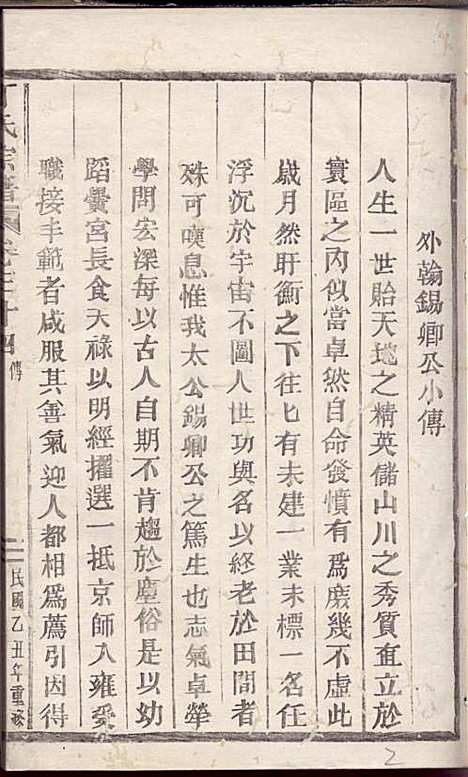 外翰錫卿公小傳
人生一世貽天地之精英儲山川之秀質直立於
寰區之內似當卓然自命發憤有為庶幾不虛此
歲月然盱衡之下往匕有未建一業未標一名任
浮沉於宇宙不圖人世功與名以終老於田間者
殊可嘆息惟我太公錫卿公之篤生也志氣卓犖
學問宏深每以古人自期不肯趨於塵俗是以幼
蹈黌宮長食天祿以明經擢選一抵京師入雍受
職接丰範者咸服其善氣迎人都相為薦引因得
丁氏宗譜 卷三十四 傳 二 民國乙丑年重修
2